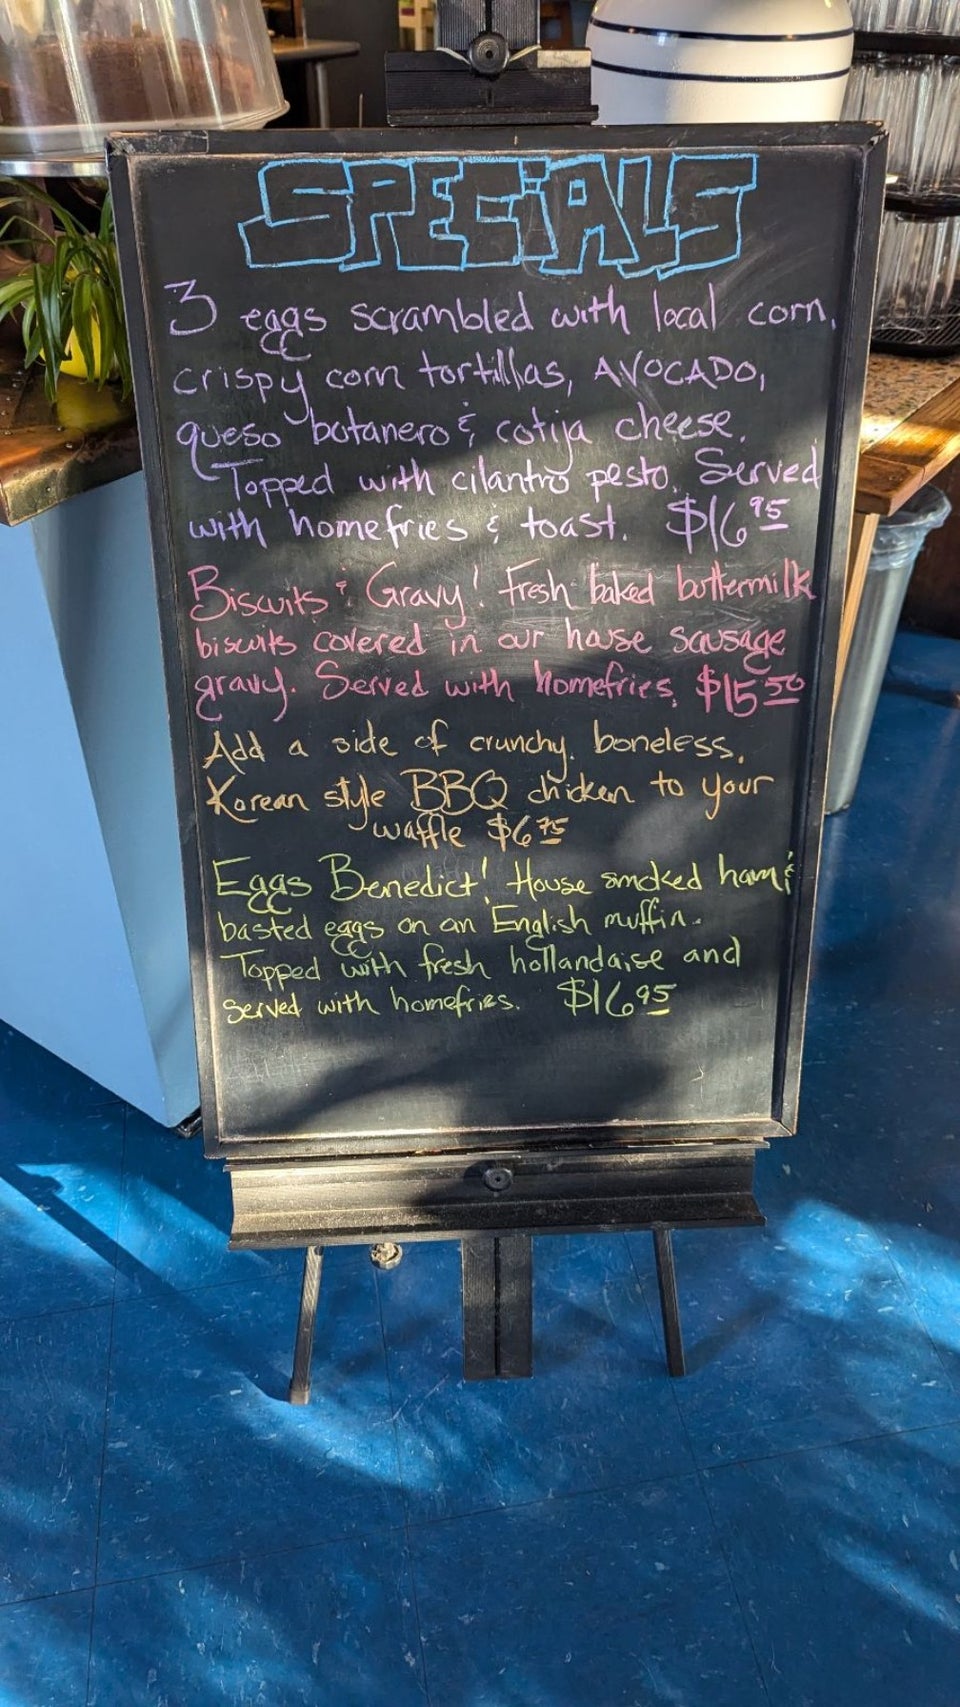 SPECiALS
3 eggs scrambled with local corn,
crispy corn tortillas, AVOCADO,
queso botanero & cotija cheese.
Topped with cilantro pesto. Served
with homefries & toast. $16.95
Biscuits & Gravy! Fresh baked buttermilk
biscuits covered in our house sausage
gravy. Served with homefries. $15.50
Add a side of crunchy, boneless,
Korean style BBQ chicken to your
waffle $6.75
Eggs Benedict! House smoked ham &
basted eggs on an English muffin.
Topped with fresh hollandaise and
served with homefries. $16.95